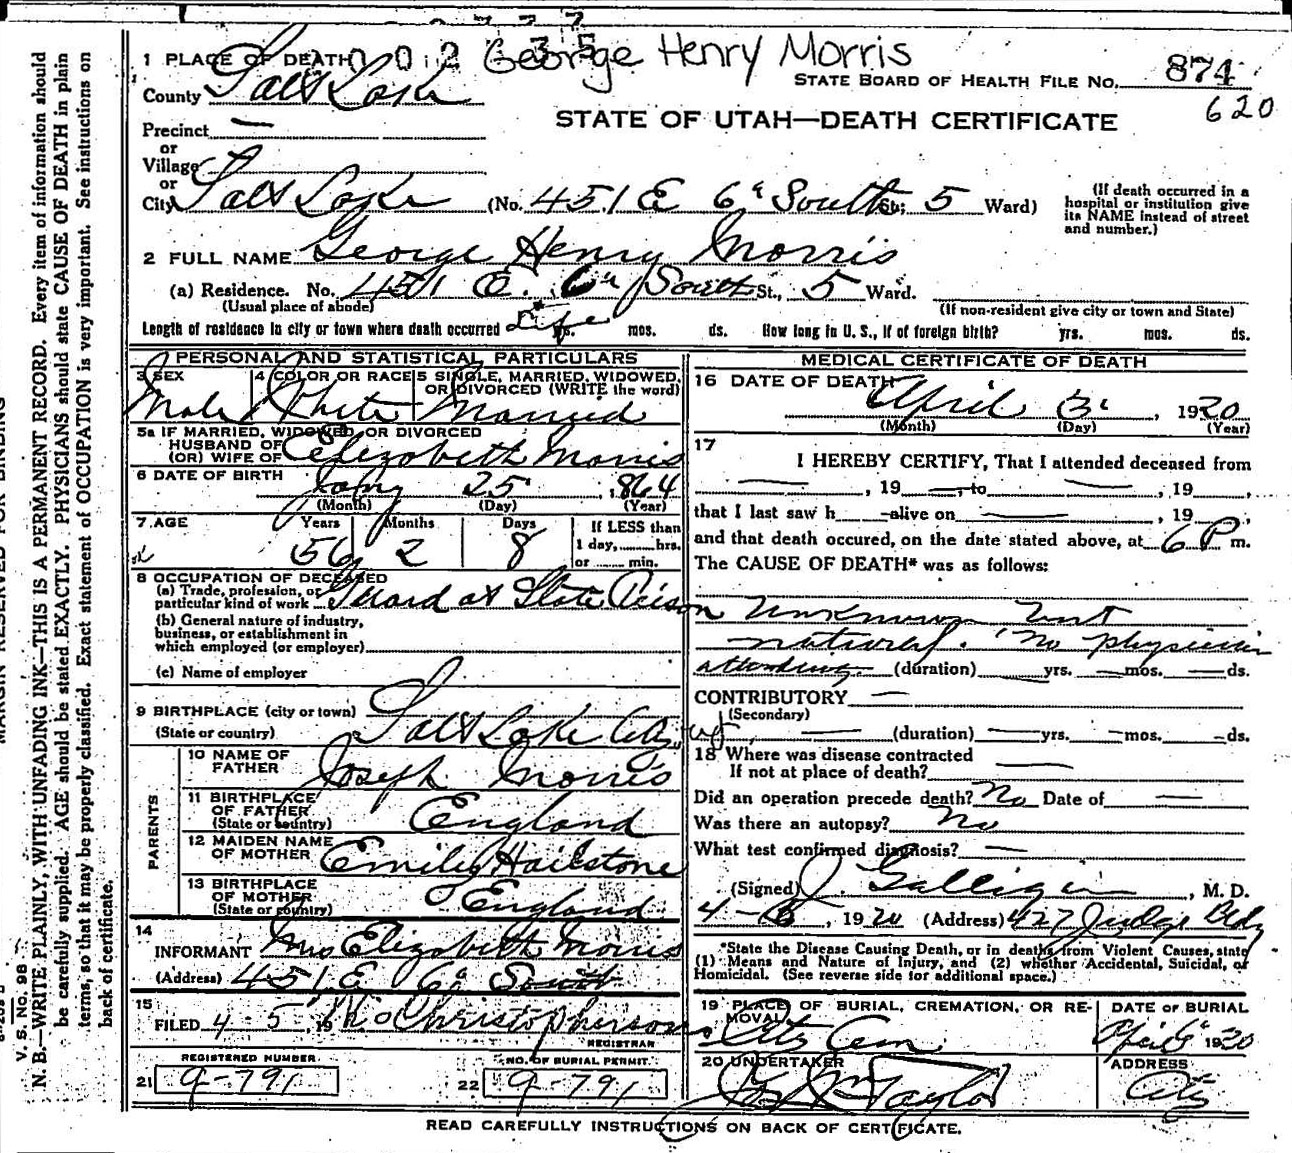 George Henry Morris
1 PLACE OF DEATH
STATE BOARD OF HEALTH FILE NO. 874
620
County Salt Lake
STATE OF UTAH—DEATH CERTIFICATE
Precinct —
or
Village
or
City Salt Lake (No. 451 E 6th South St; 5 Ward)
(If death occurred in a hospital or institution give its NAME instead of street and number.)
2 FULL NAME George Henry Morris
(a) Residence. No. 451 E. 6th South St., 5 Ward.
(Usual place of abode) (If non-resident give city or town and State)
Length of residence in city or town where death occurred Life yrs. mos. ds. How long in U. S., if of foreign birth? yrs. mos. ds.
PERSONAL AND STATISTICAL PARTICULARS
3 SEX 4 COLOR OR RACE 5 SINGLE, MARRIED, WIDOWED, OR DIVORCED (WRITE the word)
Male White Married
5a IF MARRIED, WIDOWED, OR DIVORCED
HUSBAND OF
(OR) WIFE OF Elizabeth Morris
6 DATE OF BIRTH Jany 25 1864
(Month) (Day) (Year)
7 AGE Years Months Days If LESS than
1 day, hrs.
or min.
56 2 8
8 OCCUPATION OF DECEASED
(a) Trade, profession, or
particular kind of work Guard at State Prison
(b) General nature of industry,
business, or establishment in
which employed (or employer)
(c) Name of employer
9 BIRTHPLACE (city or town)
(State or country) Salt Lake City
PARENTS
10 NAME OF
FATHER Joseph Morris
11 BIRTHPLACE
OF FATHER
(State or country) England
12 MAIDEN NAME
OF MOTHER Emily Hailstone
13 BIRTHPLACE
OF MOTHER
(State or country) England
14
INFORMANT Mrs Elizabeth Morris
(Address) 451 E 6th South
15
FILED 4-5 19 Christopherson
REGISTRAR
REGISTERED NUMBER NO. OF BURIAL PERMIT
21 9-791 22 9-791
MEDICAL CERTIFICATE OF DEATH
16 DATE OF DEATH
April 3, 1920
(Month) (Day) (Year)
17
I HEREBY CERTIFY, That I attended deceased from
—, 19 —, to —, 19 ,
that I last saw h — alive on —, 19 ,
and that death occured, on the date stated above, at 6 P m.
The CAUSE OF DEATH* was as follows:
Unknown but
natural. No physician
attending. (duration) yrs. — mos. — ds.
CONTRIBUTORY —
(Secondary)
— (duration) — yrs. — mos. — ds.
18 Where was disease contracted
If not at place of death? —
Did an operation precede death? No Date of —
Was there an autopsy? No
What test confirmed diagnosis? —
(Signed) J. Galligan, M. D.
4-6, 1920 (Address) 427 Judge Bldg
*State the Disease Causing Death, or in deaths from Violent Causes, state
(1) Means and Nature of Injury, and (2) whether Accidental, Suicidal, or
Homicidal. (See reverse side for additional space.)
19 PLACE OF BURIAL, CREMATION, OR RE-
MOVAL DATE OF BURIAL
City Cem April 6 1920
20 UNDERTAKER ADDRESS
Jos Wm Taylor City
READ CAREFULLY INSTRUCTIONS ON BACK OF CERTIFICATE.
MARGIN RESERVED FOR BINDING
V. S. No. 98
N. B.—WRITE PLAINLY, WITH UNFADING INK—THIS IS A PERMANENT RECORD. Every item of information should
be carefully supplied. AGE should be stated EXACTLY. PHYSICIANS should state CAUSE OF DEATH in plain
terms, so that it may be properly classified. Exact statement of OCCUPATION is very important. See instructions on
back of certificate.